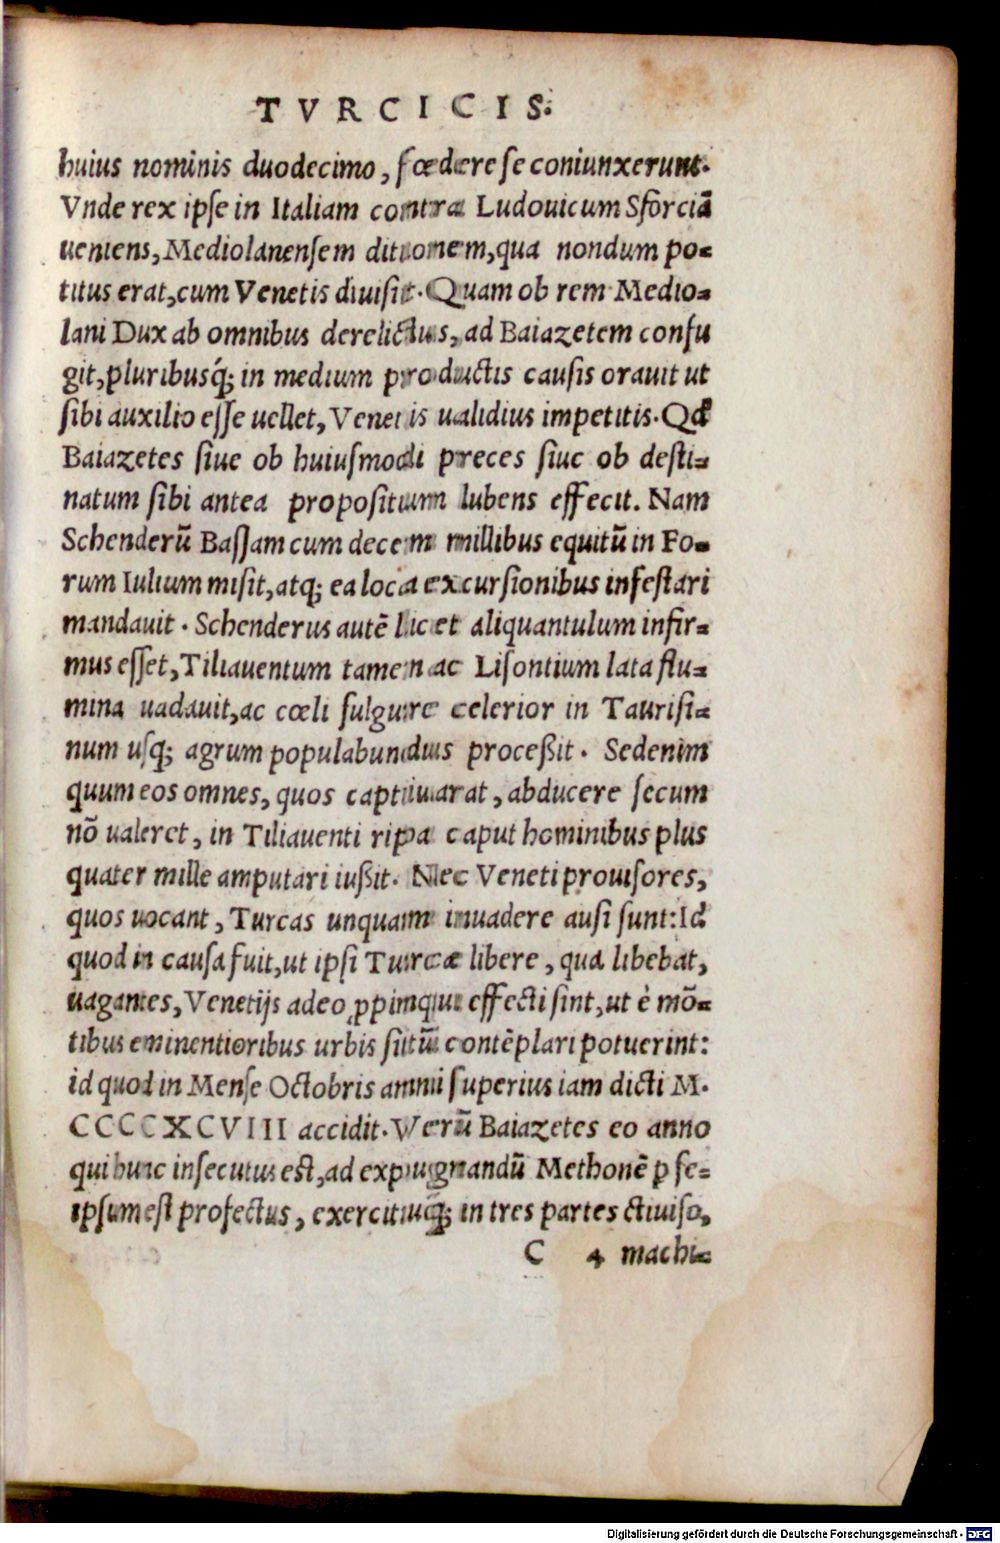 TVRCICIS.
huius nominis duodecimo, fœdere se coniunxerunt.
Vnde rex ipse in Italiam contra Ludouicum Sforciā
ueniens, Mediolanensem ditionem, qua nondum po-
titus erat, cum Venetis diuisit. Quam ob rem Medio-
lani Dux ab omnibus derelictus, ad Baiazetem confu
git, pluribusq́; in medium productis causis orauit ut
sibi auxilio esse uellet, Venetis ualidius impetitis. Qđ
Baiazetes siue ob huiusmodi preces siue ob desti-
natum sibi antea propositum lubens effecit. Nam
Schenderū Bassam cum decem millibus equitū in Fo-
rum Iulium misit, atq; ea loca excursionibus infestari
mandauit. Schenderus autē licet aliquantulum infir-
mus esset, Tiliauentum tamen ac Lisontium lata flu-
mina uadauit, ac cœli fulgure celerior in Taurisi-
num usq; agrum populabundus proceßit. Sed enim
quum eos omnes, quos captiuarat, abducere secum
nō ualeret, in Tiliauenti ripa caput hominibus plus
quater mille amputari iußit. Nec Veneti prouisores,
quos uocant, Turcas unquam inuadere ausi sunt: Id
quod in causa fuit, ut ipsi Turcæ libere, qua libebat,
uagantes, Venetijs adeo ꝓpinqui effecti sint, ut è mō-
tibus eminentioribus urbis sitū contēplari potuerint:
id quod in Mense Octobris anni superius iam dicti M.
CCCCXCVIII accidit. Verū Baiazetes eo anno
qui hunc insecutus est, ad expugnandū Methonē ꝑ se-
ipsum est profectus, exercituq́; in tres partes diuiso,
C 4 machi-
Digitalisierung gefördert durch die Deutsche Forschungsgemeinschaft - DFG